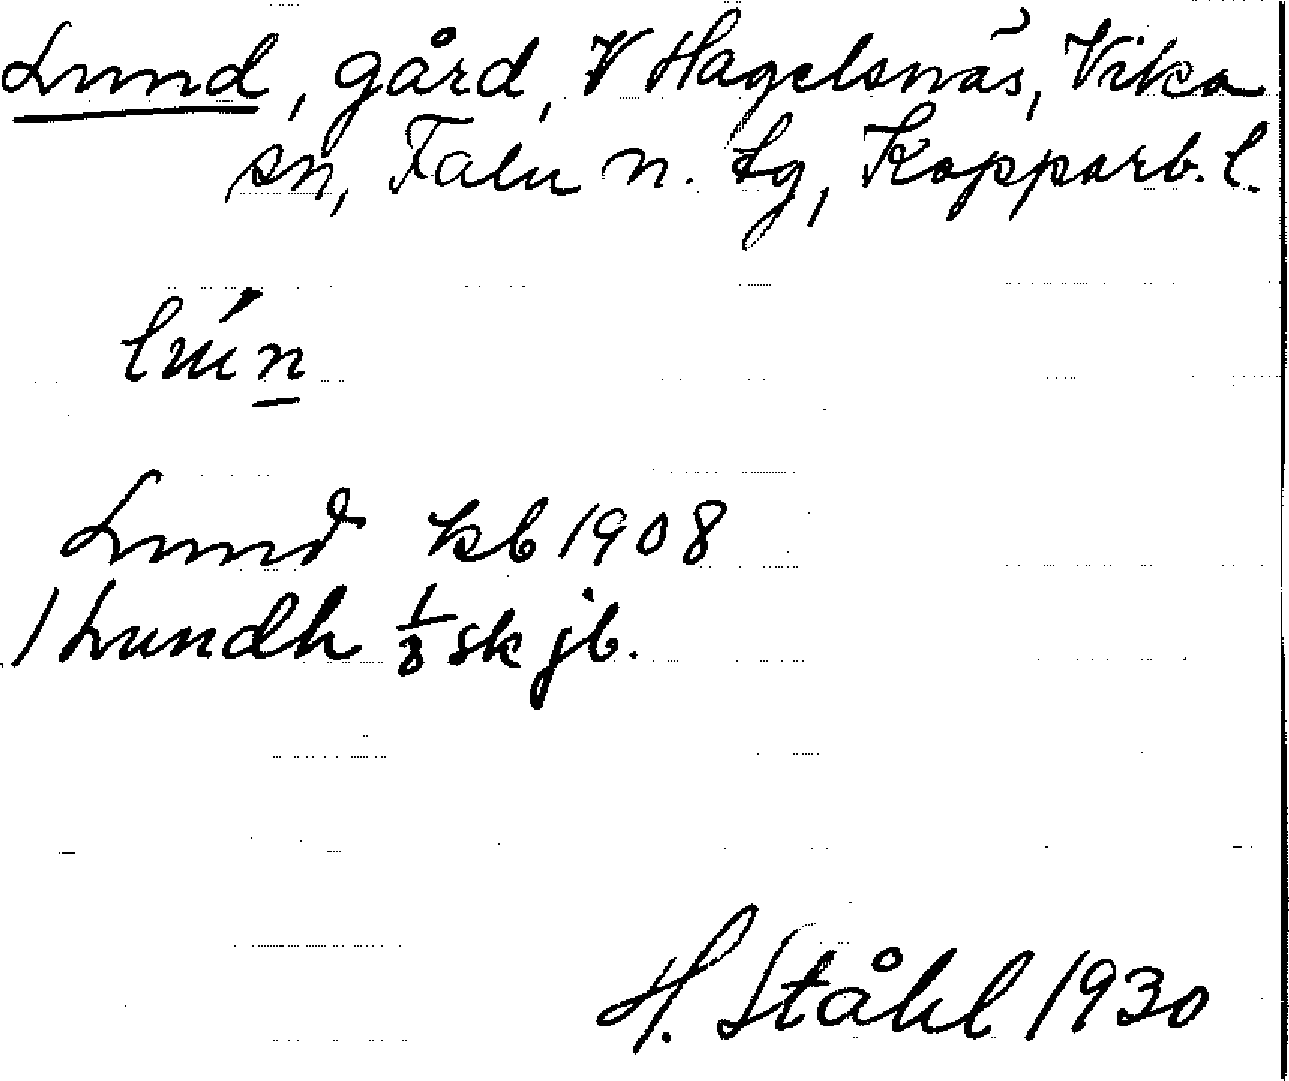 Lund, gård, V Hagelsnäs, Vika
sn, Falu n. tg, Kopparb. l.
lu´n
Lund kb 1908
/ Lundh 1/8 sk jb.
H. Ståhl 1930